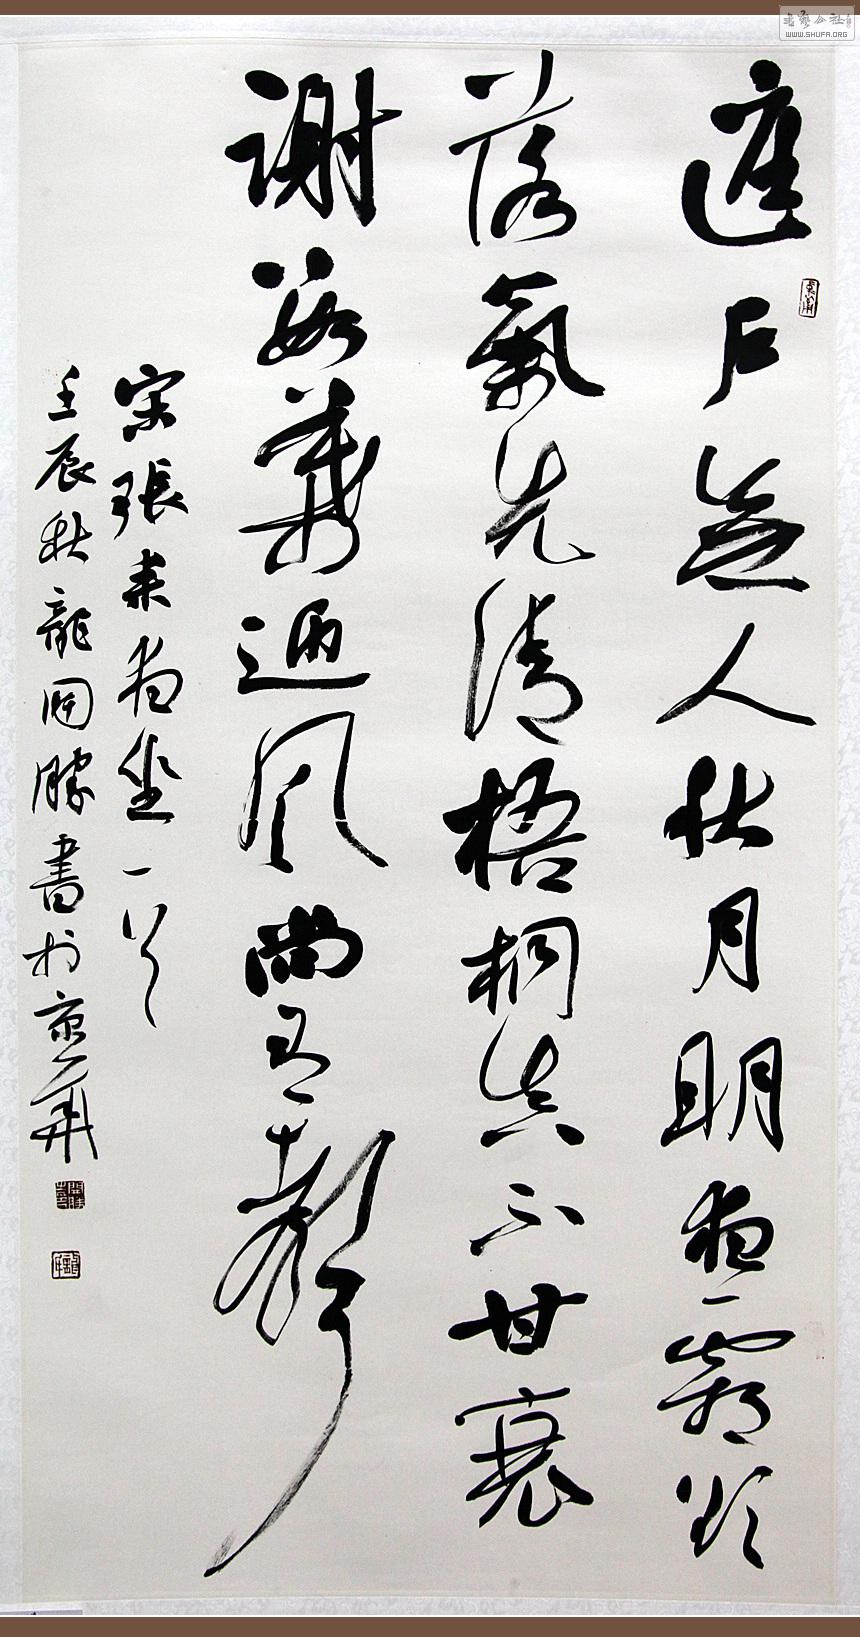 庭户無人秋月明夜霜欲
落氣先清梧桐真不甘衰
謝數葉迎風尚有聲
宋張耒夜坐一首
壬辰秋龍開勝書於京華
WWW.SHUFA.ORG